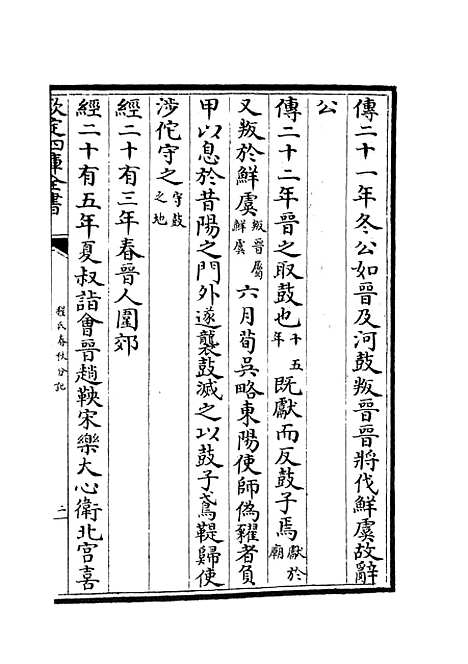 傳二十一年冬公如晉及河鼓叛晉晉將伐鮮虞故辭
公
傳二十二年晉之取鼓也十五年既獻而反鼓子焉獻於廟
又叛於鮮虞叛晉屬鮮虞六月荀吳略東陽使師偽糴者負
甲以息於昔陽之門外遂襲鼓滅之以鼓子鳶鞮歸使
涉佗守之守鼓之地
經二十有三年春晉人圍郊
經二十有五年夏叔詣會晉趙鞅宋樂大心衛北宮喜
欽定四庫全書
程氏春秋分記
二